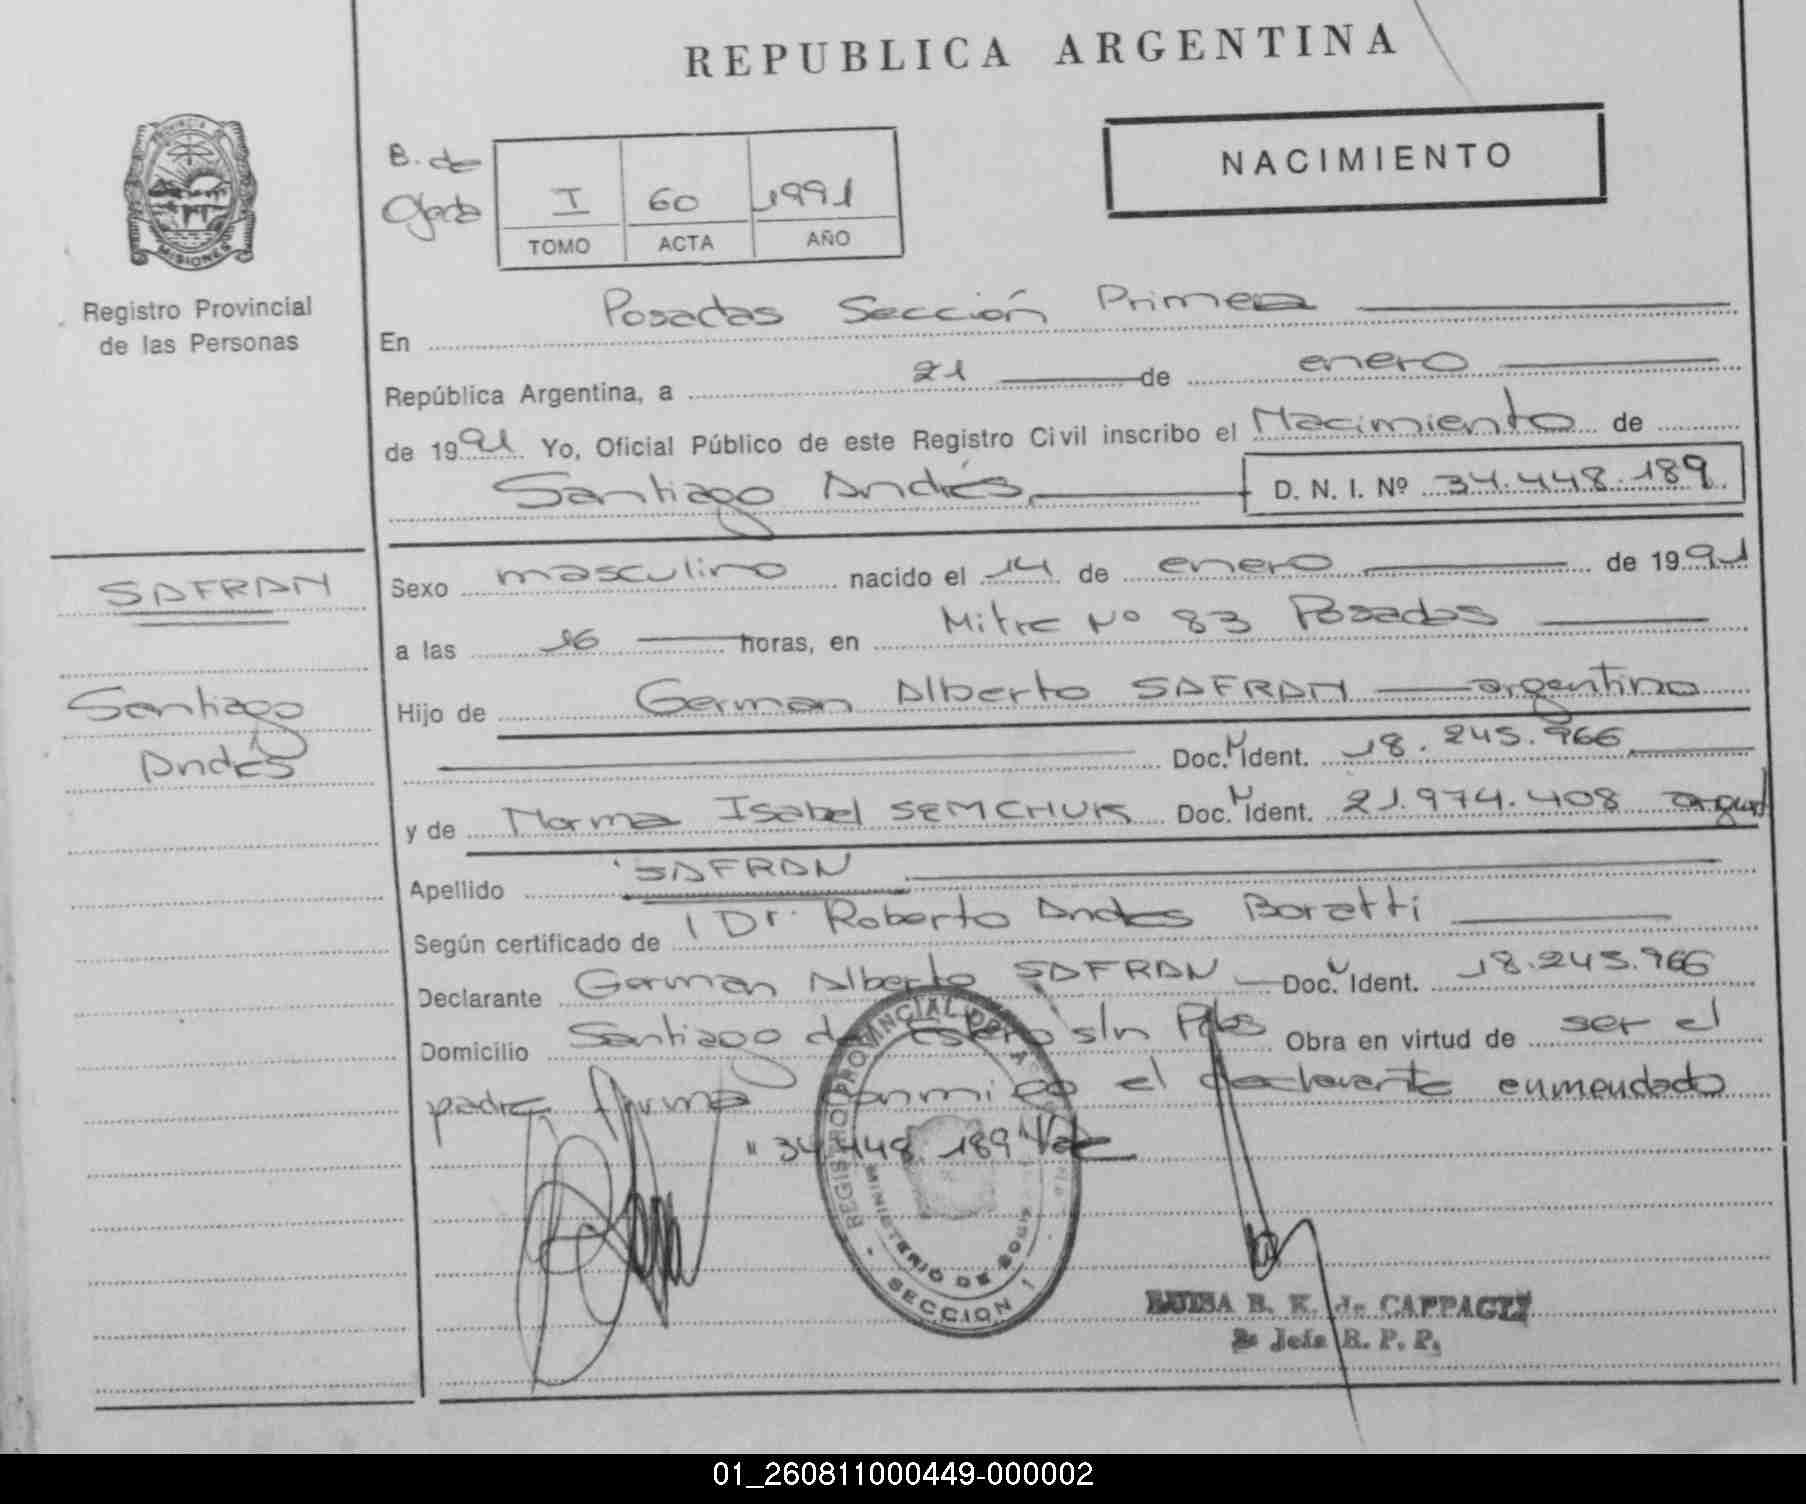 REPUBLICA ARGENTINA
NACIMIENTO
B. de
I 60 1991
TOMO ACTA AÑO
PROVINCIA DE
MISIONES
Registro Provincial
de las Personas
En Posadas Sección Primera
República Argentina, a 21 de enero
de 1991 Yo, Oficial Público de este Registro Civil inscribo el Nacimiento de
Santiago Andrés D. N. I. Nº 34.448.189
SAFRAN
Santiago
Andrés
Sexo masculino nacido el 14 de enero de 1991
a las 16 horas, en Mitre Nº 83 Posadas
Hijo de German Alberto SAFRAN argentino
Doc. N Ident. 18.245.966
y de Norma Isabel SEMCHUK Doc. N Ident. 21.974.408
Apellido SAFRAN
Según certificado de Dr. Roberto Andes Boratti
Declarante German Alberto SAFRAN Doc. N Ident. 18.245.966
Domicilio Santiago del Estero s/n Pdas Obra en virtud de ser el
padre firma conmigo el declarante enmendado
"34.448.189" Vale
REGISTRO PROVINCIAL DE
MINISTERIO DE
SECCION 1
LUISA B. K. de CAPPAGLI
Jefe R. P. P.
01_260811000449-000002